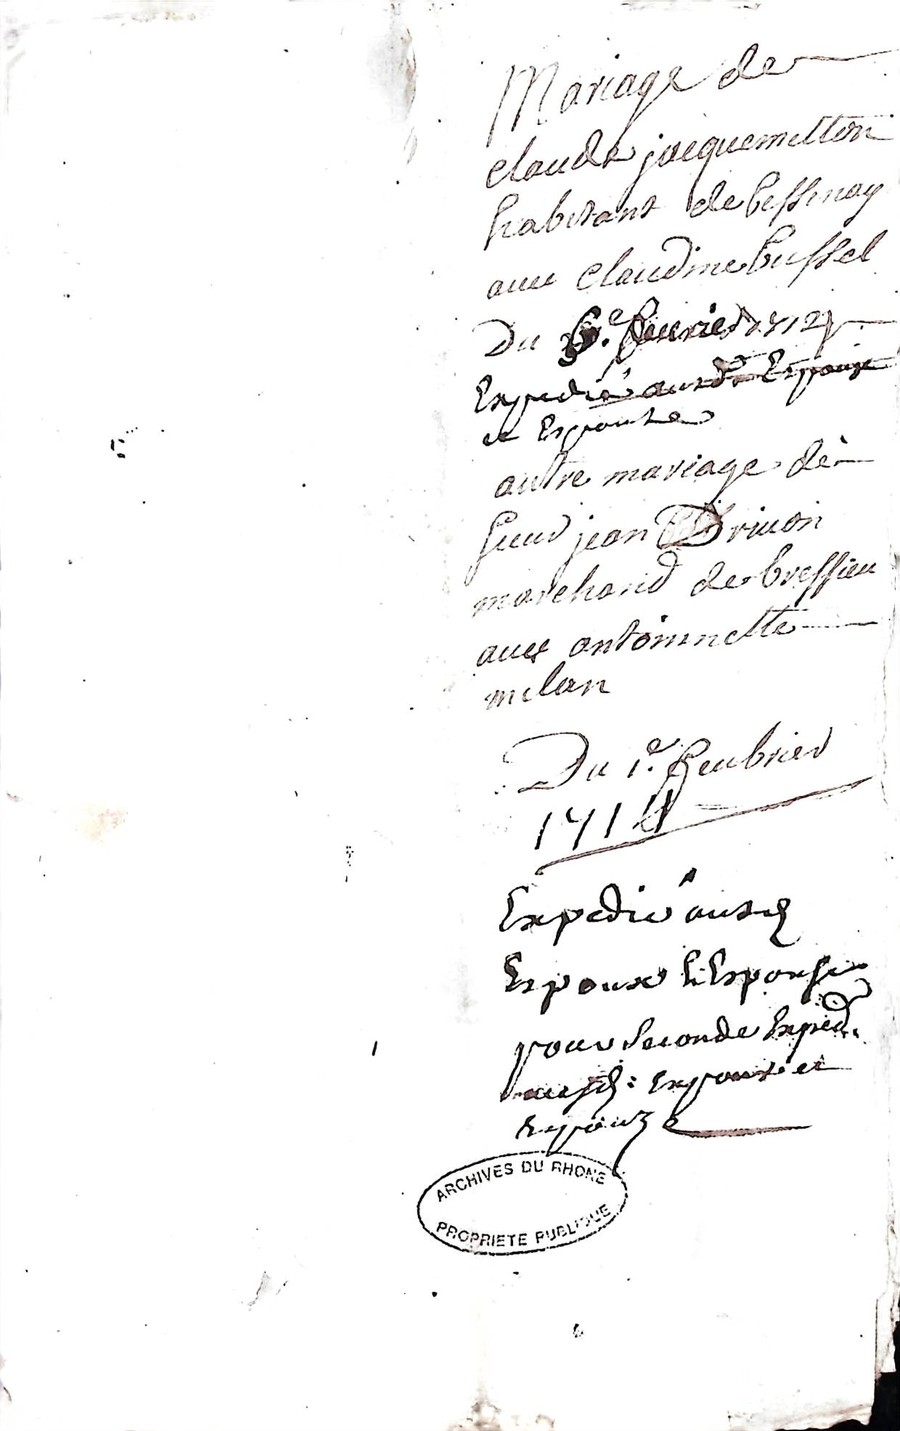 Mariage de
claude jacquemetton
habitant de bessenay
auec claudine bussel
Du feurier
Expedié auxd Espoux
et Espouse
autre mariage de
sieur jean Driuon
marchand de bressieu
auec antoinnette
milan
Du 1er feubrier
1714
Expedié auxd
Espoux & Espouse
pour seconde Exped.
auxd: Espoux et
Espouze
ARCHIVES DU RHONE
PROPRIETE PUBLIQUE